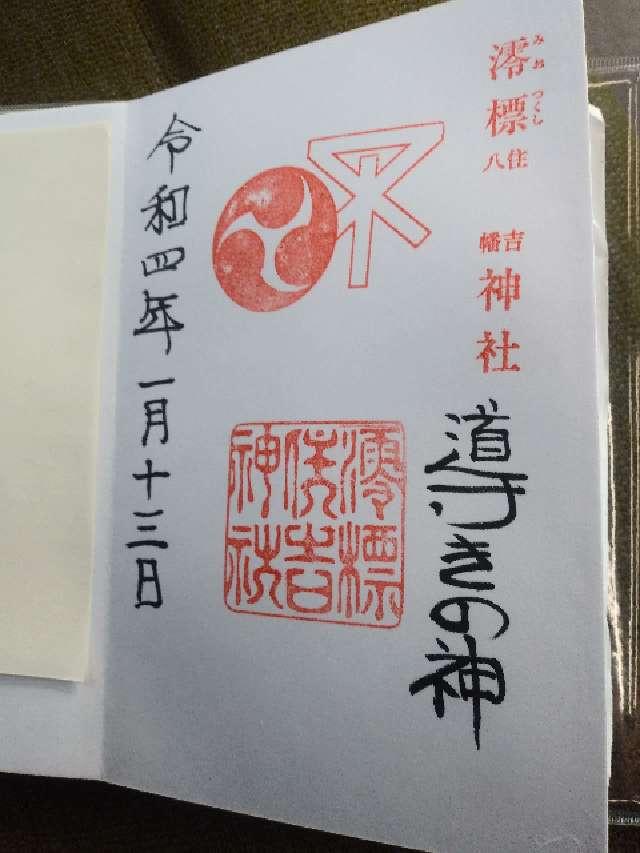 澪標住吉八幡神社
みおつくし
導きの神
澪標
住吉
神社
令和四年一月十三日